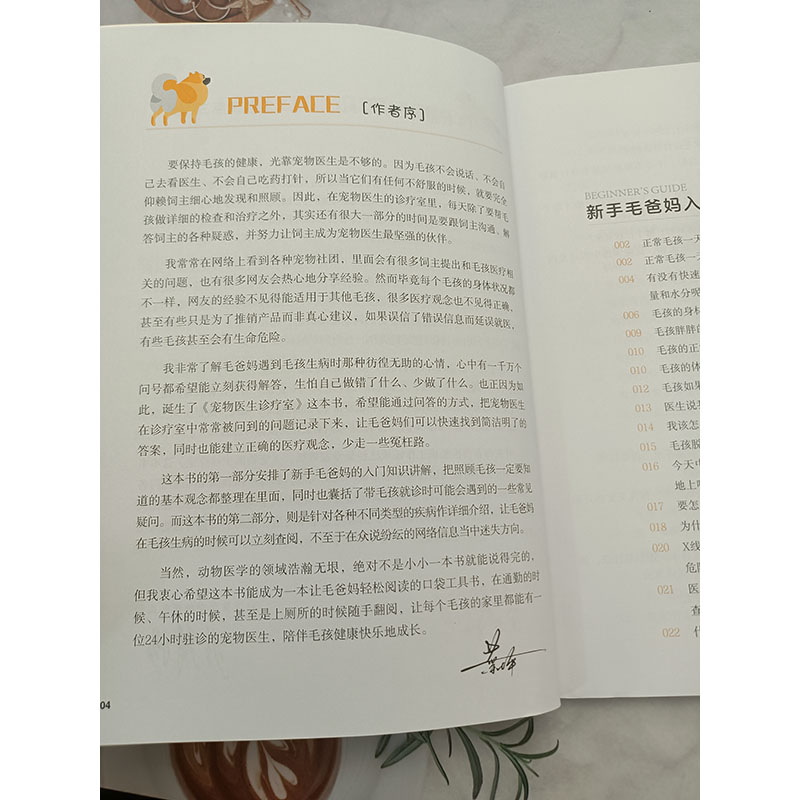 PREFACE [作者序]
要保持毛孩的健康，光靠宠物医生是不够的。因为毛孩不会说话、不会自
己去看医生、不会自己吃药打针，所以当它们有任何不舒服的时候，就要完全
仰赖饲主细心地发现和照顾。因此，在宠物医生的诊疗室里，每天除了要帮毛
孩做详细的检查和治疗之外，其实还有很大一部分的时间是要跟饲主沟通、解
答饲主的各种疑惑，并努力让饲主成为宠物医生最坚强的伙伴。
我常常在网络上看到各种宠物社团，里面会有很多饲主提出和毛孩医疗相
关的问题，也有很多网友会热心地分享经验。然而毕竟每个毛孩的身体状况都
不一样，网友的经验不见得能适用于其他毛孩，很多医疗观念也不见得正确，
甚至有些只是为了推销产品而非真心建议，如果误信了错误信息而延误就医，
有些毛孩甚至会有生命危险。
我非常了解毛爸妈遇到毛孩生病时那种彷徨无助的心情，心中有一千万个
问号都希望能立刻获得解答，生怕自己做错了什么、少做了什么。也正因为如
此，诞生了《宠物医生诊疗室》这本书，希望能通过问答的方式，把宠物医生
在诊疗室中常常被问到的问题记录下来，让毛爸妈们可以快速找到简洁明了的
答案，同时也能建立正确的医疗观念，少走一些冤枉路。
这本书的第一部分安排了新手毛爸妈的入门知识讲解，把照顾毛孩一定要知
道的基本观念都整理在里面，同时也囊括了带毛孩就诊时可能会遇到的一些常见
疑问。而这本书的第二部分，则是针对各种不同类型的疾病作详细介绍，让毛爸妈
在毛孩生病的时候可以立刻查阅，不至于在众说纷纭的网络信息当中迷失方向。
当然，动物医学的领域浩瀚无垠，绝对不是小小一本书就能说得完的，
但我衷心希望这本书能成为一本让毛爸妈轻松阅读的口袋工具书，在通勤的时
候、午休的时候，甚至是上厕所的时候随手翻阅，让每个毛孩的家里都能有一
位24小时驻诊的宠物医生，陪伴毛孩健康快乐地成长。
04
BEGINNER'S GUIDE
新手毛爸妈入
002 正常毛孩一天
002 正常毛孩一天
004 有没有快速
量和水分呢
006 毛孩的身材
009 毛孩胖胖的
010 毛孩的正
010 毛孩的体
012 毛孩如果
013 医生说我
014 我该怎
015 毛孩脱
016 今天中
地上
017 要怎
018 为什
020 X线
危
021 医
查
022 什